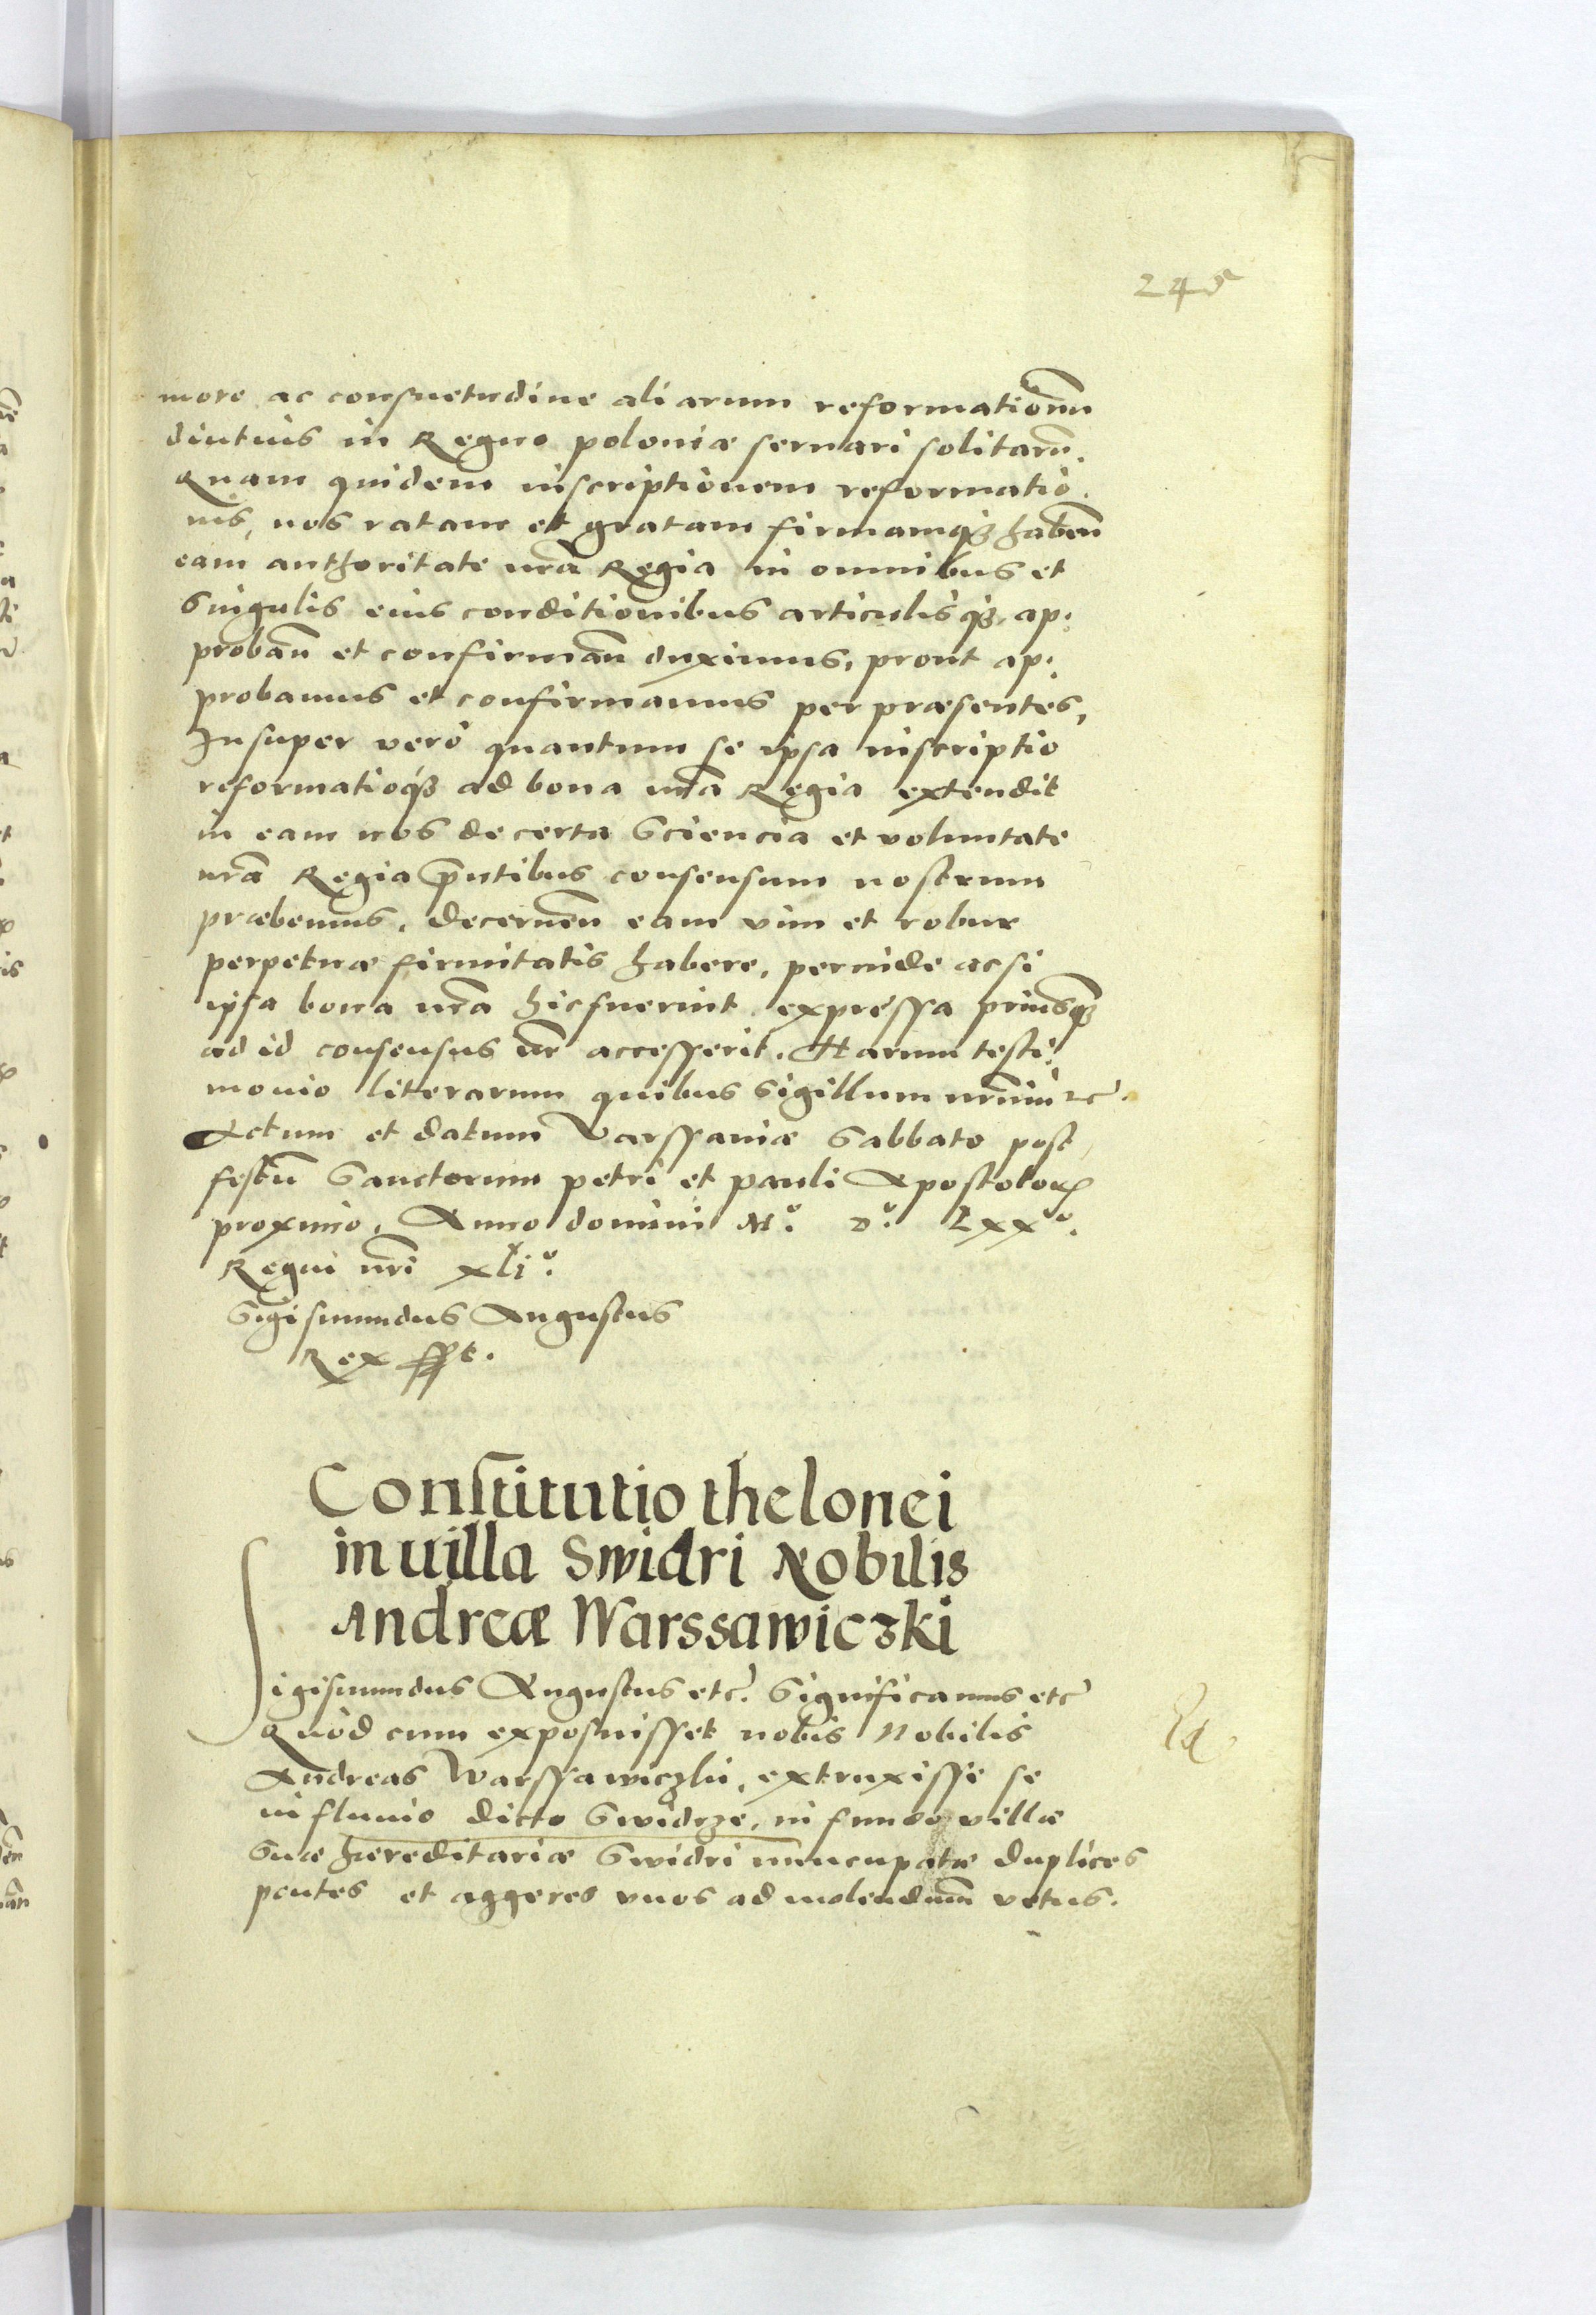 245
more ac consuetudine aliarum reformationũ
diutius in Regno poloniæ seruari solitarũ.
Quam quidem inscriptionem reformatio.
nis, nos ratam et gratam firmamqꝫ habeñ
eam authoritate nrã Regia in omnibus et
singulis eius conditionibus articulisqꝫ, ap:
probañ et confirmañ duximus, prout ap:
probamus et confirmamus per præsentes,
Insuper verò quantum se ipsa inscriptio
reformatioqꝫ ad bona nrã Regia extendit
in eam nos de certa sciencia et voluntate
nrã Regia p̃ntibus consensum nostrum
præbemus, decerneñ eam vim et robur
perpetuæ firmitatis habere, perinde ac si
ipsa bona nrã hic fuerint expressa priusqꝫ
ad id consensus nr̃ accesserit. Harum testi:
monio literarum quibus sigillum nrũm etc̃.
Actum et datum Varssauiæ Sabbato post
festũ Sanctorum petri et pauli Apostoloꝝ
proximo, Anno domini Mº. Dº. Lxxº.
Regni nrĩ xljº.
Sigismundus Augustus
Rex sst.
Constitutio thelonei
in uilla Swidri Nobilis
Andreæ Warssawiczki
Sigismundus Augustus etc̃. Significamus etc̃
Quòd cum exposuisset nobis Nobilis
Andreas Warssawiczki, extruxisse se
in fluuio dicto Swidrze, in fundo villæ
suæ hæreditariæ Swidri nuncupatæ duplices
pontes et aggeres vnos ad molendinũ vetus.